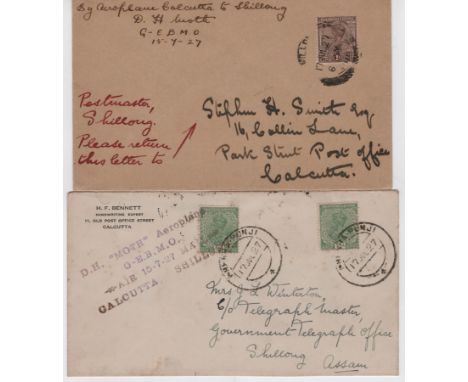 By Aeroplane Calcutta to Shillong
D. H. Moth
G-E B M O
15-7-27
Postmaster,
Shillong.
Please return
this letter to
Stephen H. Smith Esq
16, Collin Lane,
Park Street Post office
Calcutta.
H. F. BENNETT
HANDWRITING EXPERT
11, OLD POST OFFICE STREET
CALCUTTA
D.H. "MOTH" Aeroplane
G-E.B.M.O.
AIR 15-7-27 MA
CALCUTTA SHILL
17 JUL 27
17 JUL 27
Mrs J L Winterton,
c/o Telegraph Master,
Government Telegraph Office
Shillong
Assam